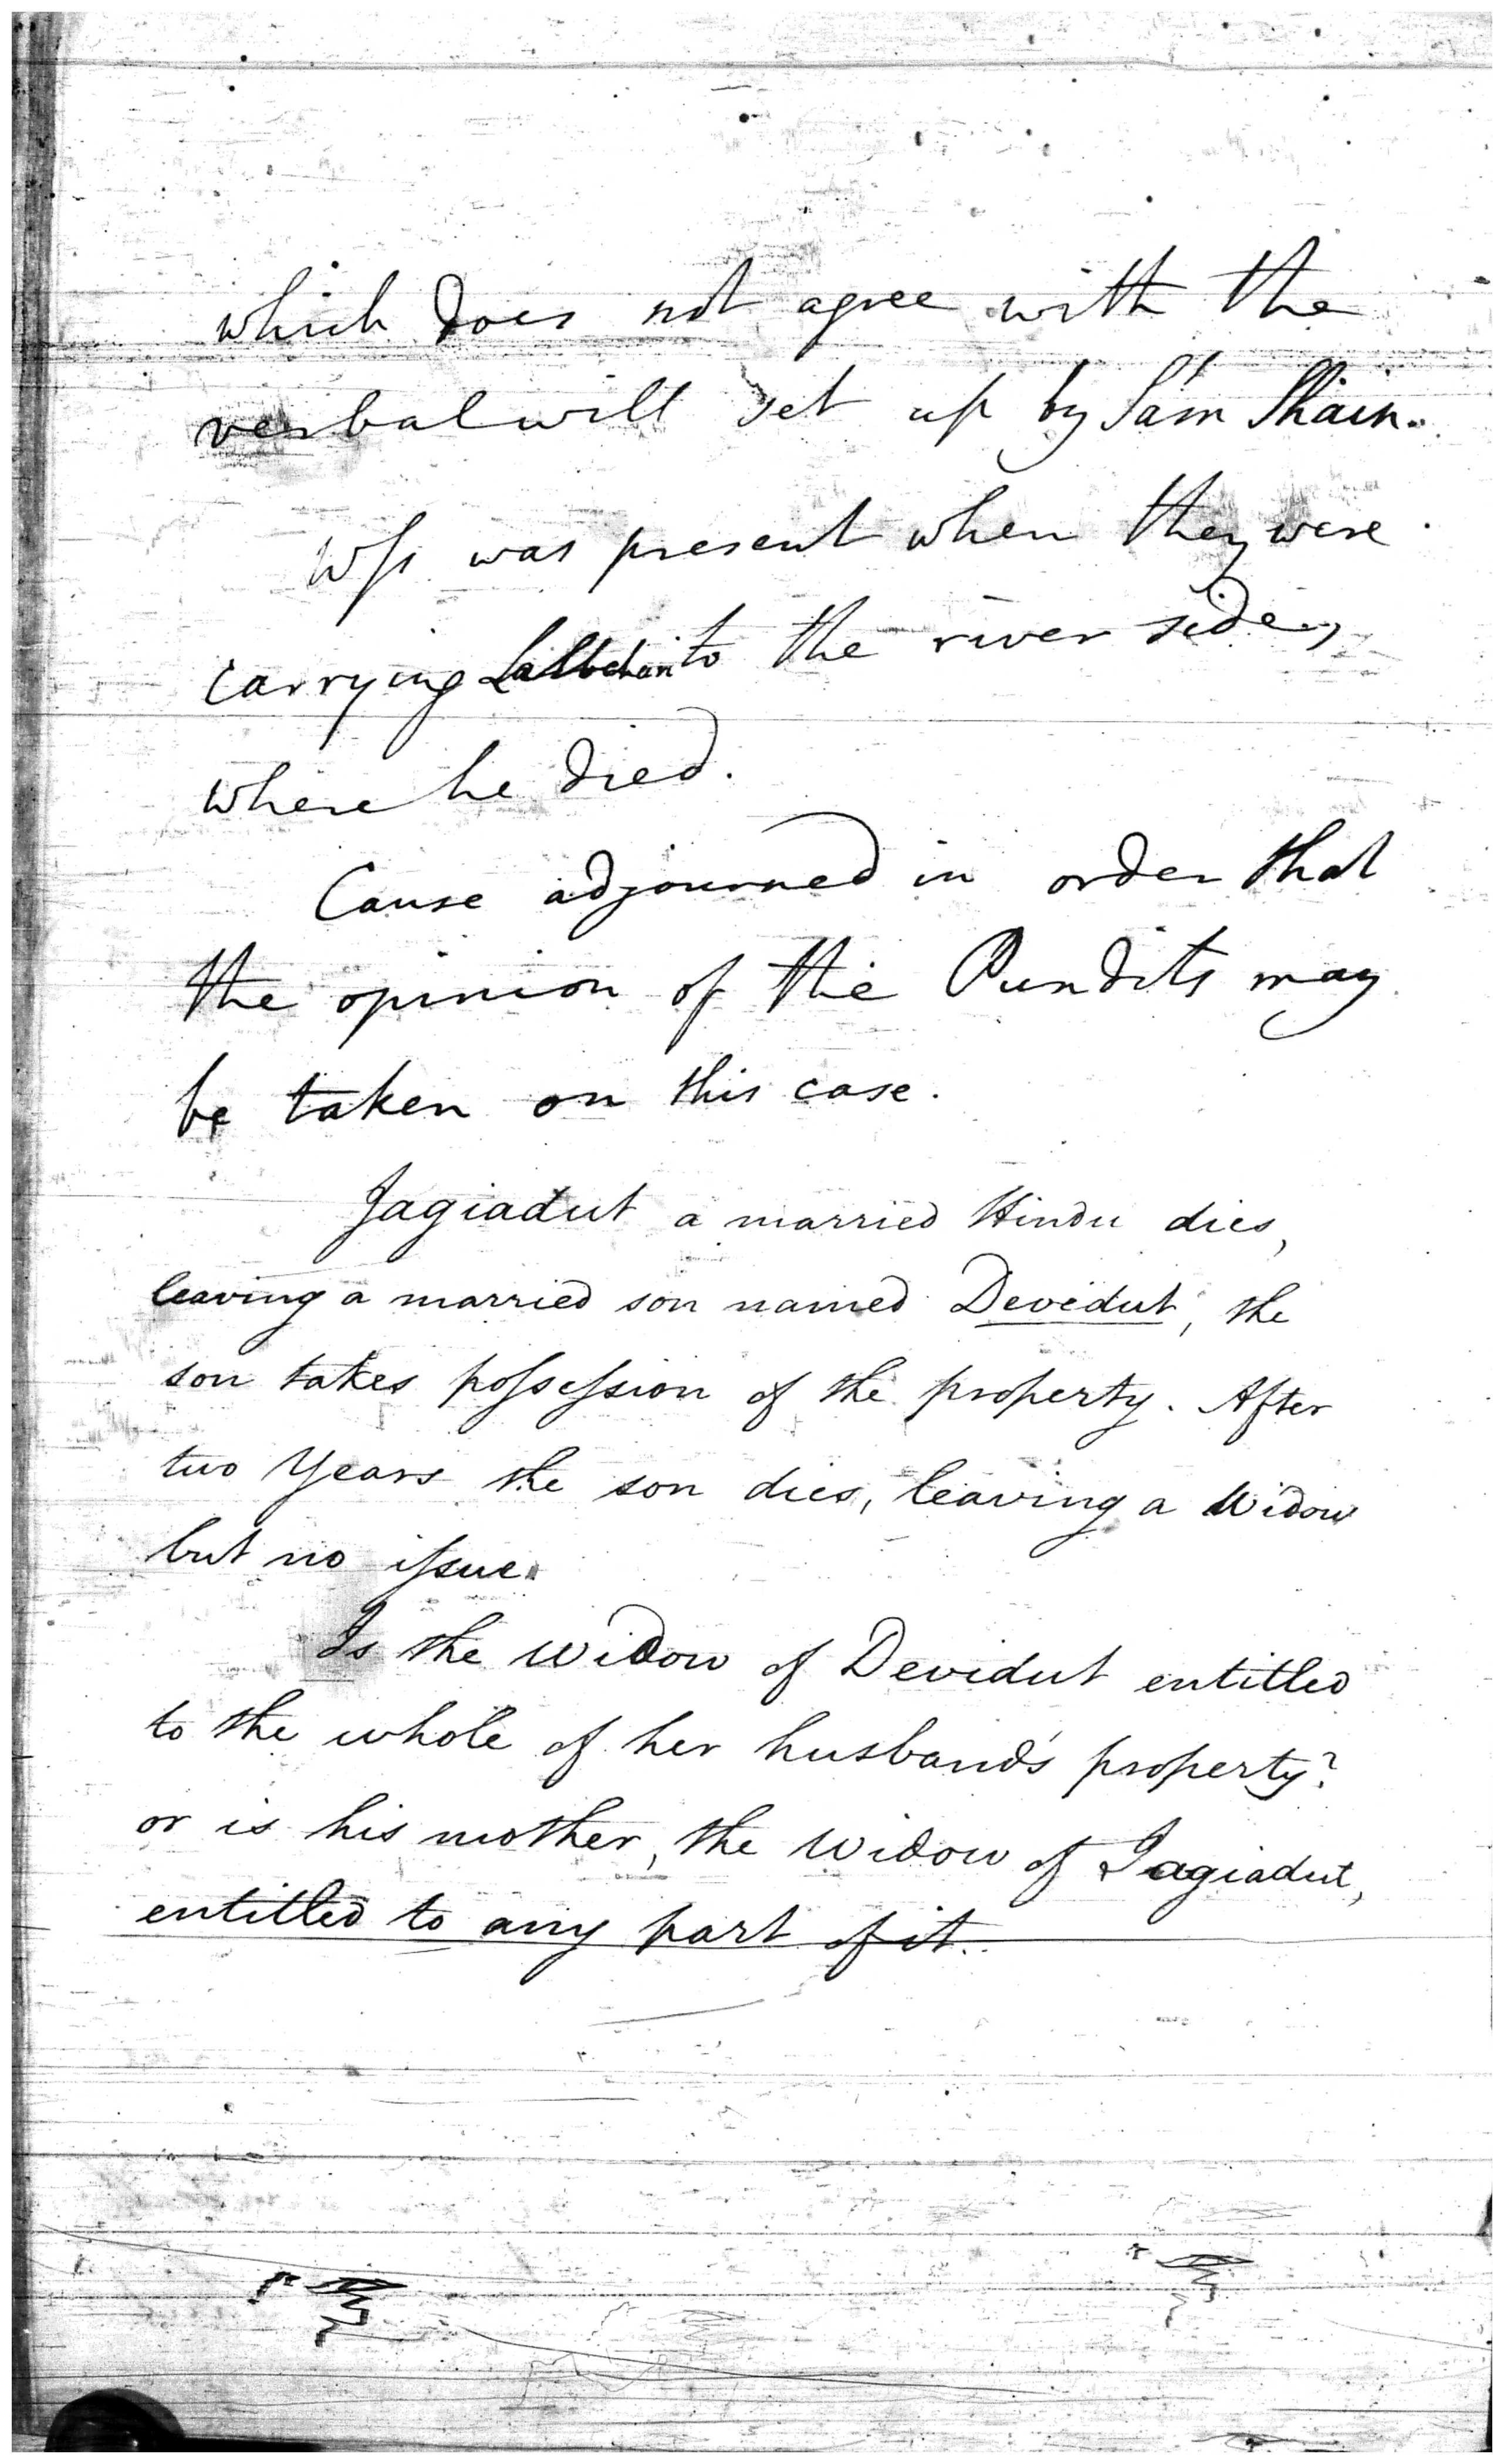 which does not agree with the
verbal will set up by Sam Shain.
Wss was present when they were
carrying Lallbehari to the river side,
where he died.
Cause adjourned in order that
the opinion of the Pundits may
be taken on this case.
Jagiadut a married Hindu dies,
leaving a married son named Devidut, the
son takes possession of the property. After
two Years the son dies, leaving a Widow
but no issue.
Is the Widow of Devidut entitled
to the whole of her husband's property?
or is his mother, the Widow of Jagiadut,
entitled to any part of it.